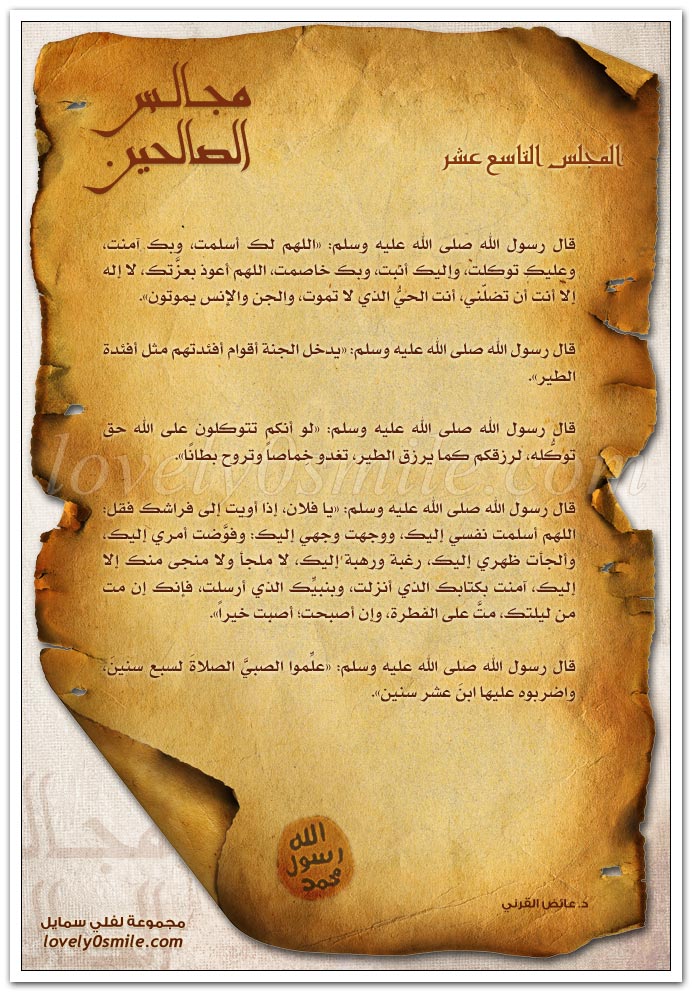 مجالس
الصالحين
المجلس التاسع عشر
قال رسول الله صلى الله عليه وسلم: «اللهم لك أسلمت، وبك آمنت،
وعليك توكلت، وإليك أنبت، وبك خاصمت، اللهم أعوذ بعزَّتك، لا إله
إلا أنت أن تضلّني، أنت الحيُّ الذي لا تموت، والجن والإنس يموتون».
قال رسول الله صلى الله عليه وسلم: «يدخل الجنة أقوام أفئدتهم مثل أفئدة
الطير».
قال رسول الله صلى الله عليه وسلم: «لو أنكم تتوكلون على الله حق
توكُّله، لرزقكم كما يرزق الطير، تغدو خماصاً وتروح بطانًا».
lovely0smile.com
قال رسول الله صلى الله عليه وسلم: «يا فلان، إذا أويت إلى فراشك فقل:
اللهم أسلمت نفسي إليك، ووجهت وجهي إليك: وفوَّضت أمري إليك،
وألجأت ظهري إليك، رغبة ورهبة إليك، لا ملجأ ولا منجى منك إلا
إليك، آمنت بكتابك الذي أنزلت، وبنبيِّك الذي أرسلت، فإنك إن مت
من ليلتك، متَّ على الفطرة، وإن أصبحت؛ أصبت خيراً».
قال رسول الله صلى الله عليه وسلم: «علِّموا الصبيَّ الصلاةَ لسبع سنينَ،
واضربوه عليها ابنَ عشر سنين».
الله
رسول
محمد
د. عائض القرني
مجموعة لفلي سمايل
lovely0smile.com